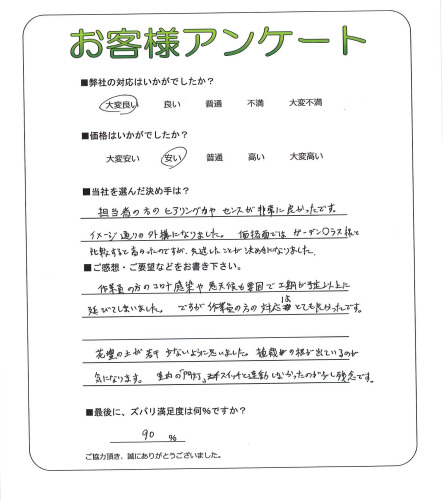 お客様アンケート
■弊社の対応はいかがでしたか？
大変良い 良い 普通 不満 大変不満
■価格はいかがでしたか？
大変安い 安い 普通 高い 大変高い
■当社を選んだ決め手は？
担当者の方のヒアリング力や センスが非常に良かったです。
イメージ通りの外構になりました。 価格面では ガーデン〇ラス様と
比較すると高かったのですが、先送したことが決め手になりました。
■ご感想・ご要望などをお書き下さい。
作業員の方のコロナ感染や 悪天候も要因で 工期が予定以上に
延びてしまいました。 ですが 作業員の方の対応は とても良かったです。
花壇の土が若干 少ないように思いました。植栽の根が出ているのが
気になります。 の「門灯」スイッチと連動しなかったのが少し残念です。
■最後に、ズバリ満足度は何％ですか？
90 ％
ご協力頂き、誠にありがとうございました。